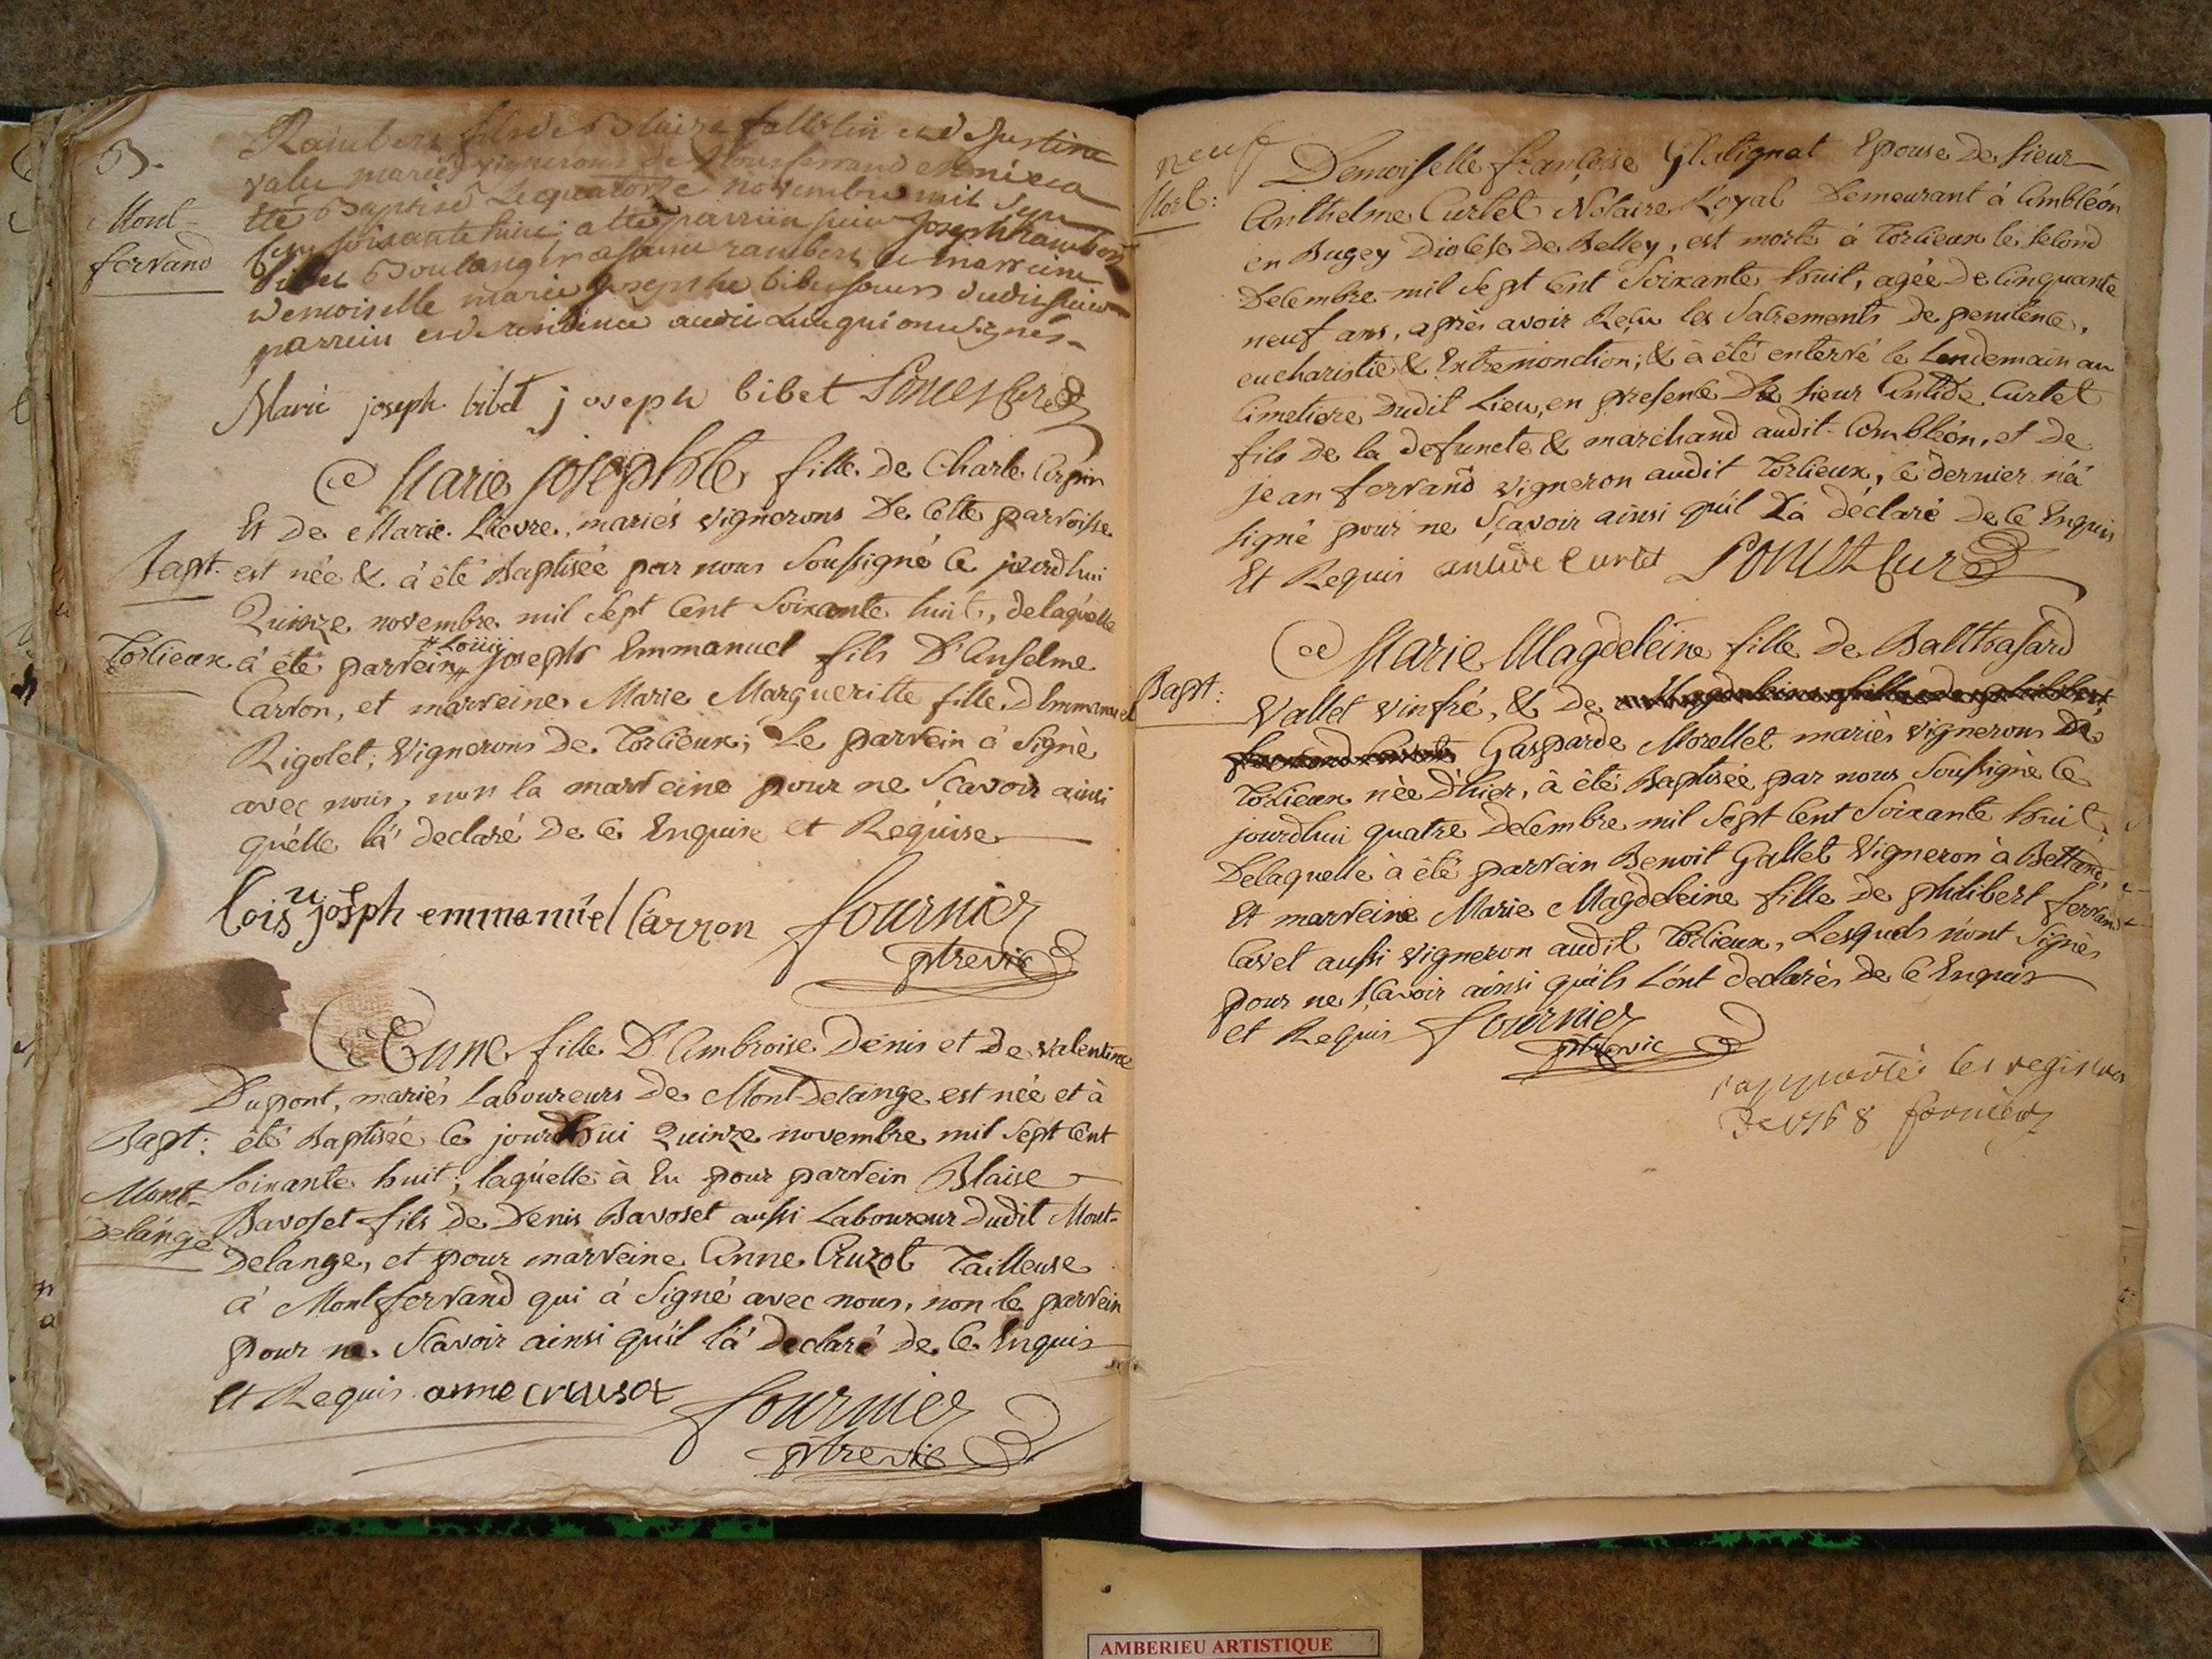 B.
Mont-
ferrand
Rambert fils de Blaize et de Justine
valet mariés vignerons de Monferrand est né et a
été Baptisé le quatorze novembre mil sept
cent soisante huit; a été parrain sieur Joseph rambert
bibet Boulanger a saint rambert et marreine
demoiselle marie josephte bibet soeur dudit sieur
parrein et residence audit lieu qui ont signés
Marie joseph bibet joseph bibet Poncet Curé
Marie Josephte fille de Charle Arpin
Et de Marie Lievre, mariés vignerons De Cette parroisse
Bapt. est née & à été Baptisée par nous Soussigné Ce jourdhui
Quinze novembre mil Sept Cent Soixante huit, delaquelle
Torlieux à été parrein # Joseph Emmanuel fils D'Anselme
# Loüis
Carron, et marreine Marie Margueritte fille D'Emmanuel
Rigolet, Vignerons De Torlieux; Le parrein à Signé
avec nous, non la marreine pour ne Scavoir ainsi
qu'elle l'à declaré De Ce Enquise et Requise
loisu joseph emmanuel Carron fournier
ptre vic
Anne fille D'Ambroise Denis et De Valentine
Dupont, mariés Laboureurs De Mont-Delange est née et à
Bapt: été Baptisée Ce jourdhui Quinze novembre mil Sept Cent
Mont- Soixante huit; laquelle à Eu pour parrein Blaise
Delange Bavoset fils de Denis Bavoset aussi Laboureur Dudit Mont-
Delange, et pour marreine Anne Cruzot Tailleuse
à Montferrand qui à Signé avec nous, non le parrein
pour ne Scavoir ainsi qu'il l'à Declaré De Ce Enquis
Et Requis anne creuset fournier
ptre vic
neuf
Mort: Demoiselle françoise Glalignat Epouse De Sieur
Anthelme Curtet Notaire Royal Demeurant à Ambléon
en Bugey Diocese De Belley, est morte à Torlieux le second
Decembre mil Sept Cent Soixante huit, agée De Cinquante
neuf ans, après avoir Reçu les Sacrements De penitence,
eucharistie & Extremonction; & à été enterré le Lendemain au
Cimetiere Dudit Lieu, en presence Du Sieur Antide Curtet
fils De la defuncte & marchand audit Ambléon, et De
jean ferrand vigneron audit Torlieux, ce dernier n'à
signé pour ne Sçavoir ainsi qu'il l'à déclaré De Ce Enquis
Et Requis antide Curtet Poncet Curé
Marie Magdeleine fille De Balthasard
Bapt: Vallet vinfré, & De
Gasparde Morellet mariès vignerons De
Torlieux née D'hier, à été Baptisée par nous Soussigné Ce
jourdhui quatre Decembre mil Sept Cent Soixante huit,
Delaquelle à été parrein Benoit Gallet Vigneron à Bettend,
Et marreine Marie Magdeleine fille De philibert ferrand
Cavet aussi vigneron audit Torlieux, Lesquels n'ont Signès
pour ne Scavoir ainsi qu'ils L'ont declarès De Ce Enquis
et Requis fournier
ptre vic
rapportés les registres
De 1768 fornier
AMBERIEU ARTISTIQUE